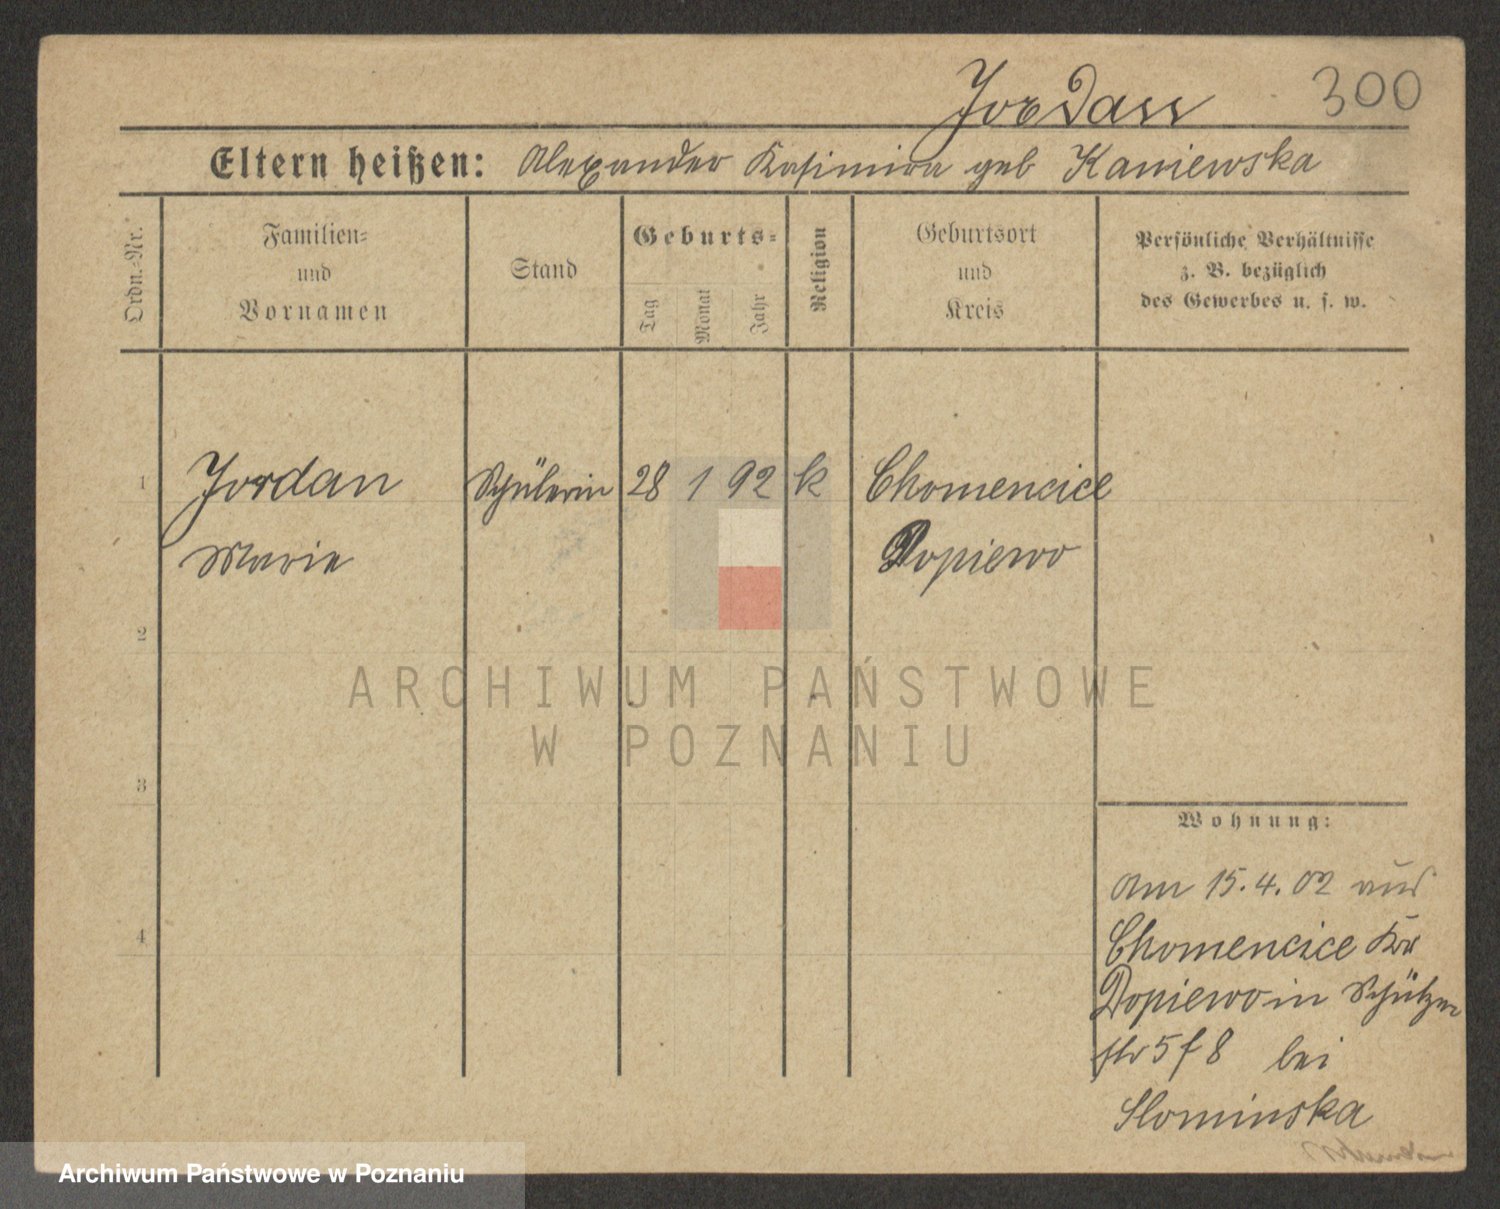 Jordan 300
Eltern heißen: Alexander Kasimira geb Kaniewska
Ordn.-Nr.
Familien-
und
Vornamen
Stand
Geburts-
Tag
Monat
Jahr
Religion
Geburtsort
und
Kreis
Persönliche Verhältnisse
z. B. bezüglich
des Gewerbes u. s. w.
1 Jordan Schülerin 28 1 92 k Chomencice
Marie Dopiewo
2
3
4
Wohnung:
Am 15.4.02 aus
Chomencice Krs
Dopiewo in Schützen
str 5 f 8 bei
Slominska
ARCHIWUM PAŃSTWOWE
W POZNANIU
Archiwum Państwowe w Poznaniu